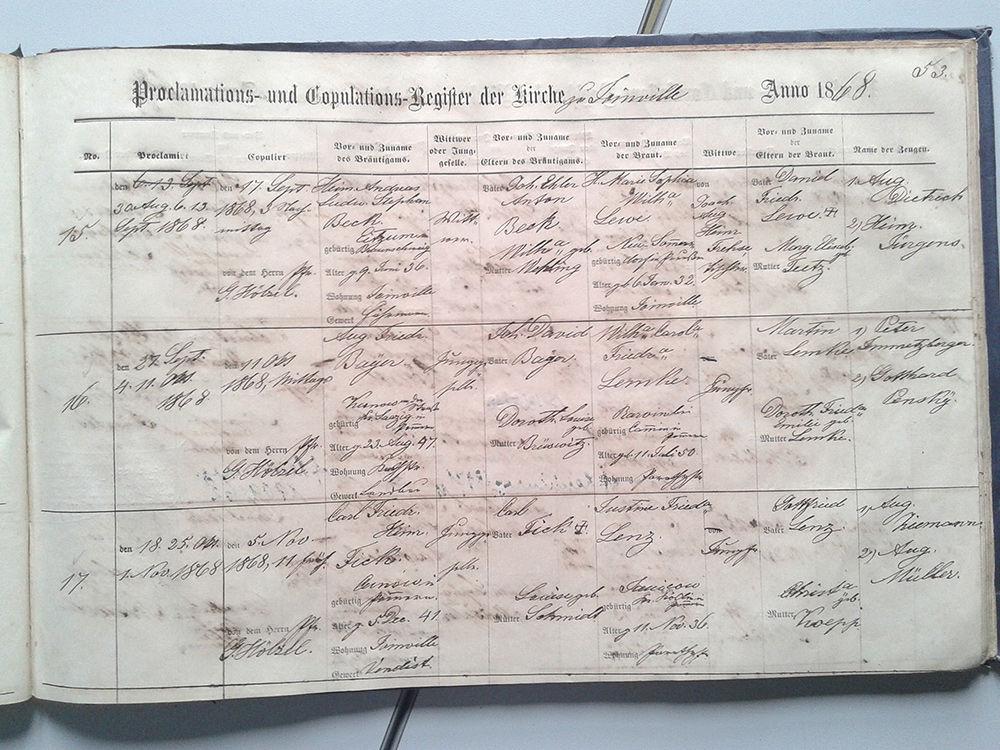 53.
Proclamations- und Copulations-Register der Kirche zu Joinville Anno 1868.
No. Proclamirt Copulirt Vor- und Zuname des Bräutigams. Wittwer oder Junggeselle. Vor- und Zuname der Eltern des Bräutigams. Vor- und Zuname der Braut. Wittwe Vor- und Zuname der Eltern der Braut. Name der Zeugen.
15.
den 13. Sept
30 Aug. 6. 13.
Sept. 1868
den 17. Sept.
1868, 3 Nach-
mittag
von dem Herrn Pfr.
G. Hölzel.
Heinr. Andreas
Ludw. Stephan
Beck
gebürtig Braunschweig
Alter g. 9. Juni 36.
Wohnung Joinville
Gewerk
Witt-
wer.
Vater Joh. Ehler
Anton
Beck
Wilh.a geb.
Mutter
Marie Sophia
Wilh.a
Lewe
gebürtig
Alter gb 6 Jan. 32.
Wohnung Joinville
von
Joach.
Aug
Heinr
Vater Daniel
Friedr.
Lewe. +
Marg. Elisab. gb
Mutter Teetz.
1. Aug.
Dietrich
2) Heinr.
Jürgens.
16.
den 27. Sept.
4. 11. Okt.
1868
den 11 Okt
1868, Mittags
von dem Herrn Pfr.
G. Hölzel.
Aug. Friedr.
Bager.
gebürtig
Alter g. 23. Aug. 47.
Wohnung
Gewerk Landbau
Jungge-
selle.
Vater Joh. David
Bager
Doroth. Louise
geb.
Mutter Brusewitz
Wilh.a Carol.a
Fried.a
Lemke.
gebürtig Cammin
Alter gb 11 Juli 50
Wohnung
Jungfr.
Martin
Vater Lemke
Doroth. Fried.a
Emilie geb.
Mutter Lemke.
1) Peter
Immetzberger.
2) Gotthard
Pensky.
17.
den 18. 25. Okt.
1. Nov. 1868
den 5. Nov
1868, 11 früh.
von dem Herrn Pfr.
G. Hölzel.
Carl Friedr.
Heinr.
Fick.
gebürtig Pommern
Alter g. 5 Dec. 41
Wohnung Joinville
Gewerk Vendist
Jungge-
selle.
Carl
Vater Fick +
Louise geb.
Mutter Schmidt
Justine Fried.a
Lenz.
gebürtig
Alter g 11. Nov. 36.
Wohnung
von
Jungfr.
Gottfried
Vater Lenz.
Christ.a
geb.
Mutter Koepp
1) Aug.
Ziemann
2) Aug.
Müller.